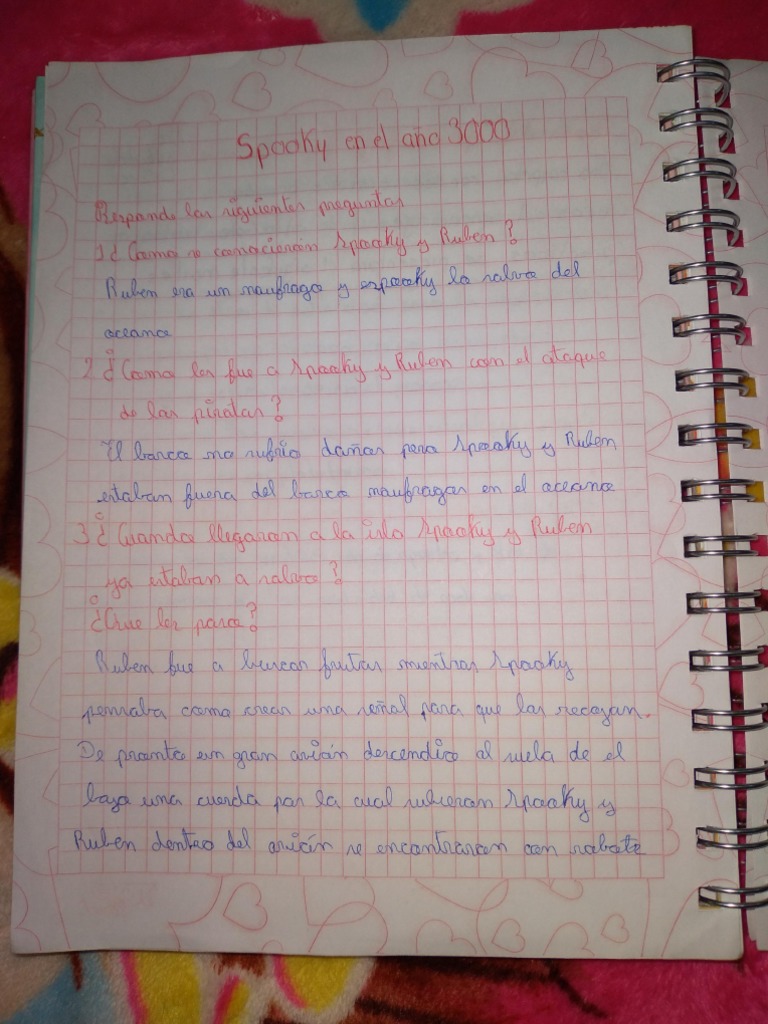 Spooky en el año 3000
Responde las siguientes preguntas
1 ¿Como se conocierón Spooky y Ruben?
Ruben era un naufrago y espooky lo salvo del
oceano
2 ¿Como les fue a Spooky y Ruben con el ataque
de los piratas?
El barco no sufrio daños pero Spooky y Ruben
estaban fuera del barco naufragos en el oceano
3 ¿Cuando llegaron a la isla Spooky y Ruben
ya estaban a salvo?
¿Que les paso?
Ruben fue a buscar frutas mientras Spooky
pensaba como crear una señal para que los recojan.
De pronto un gran avión descendico al suelo de el
bajo una cuerda por la cual subieron Spooky y
Ruben dentro del avión se encontraron con robots